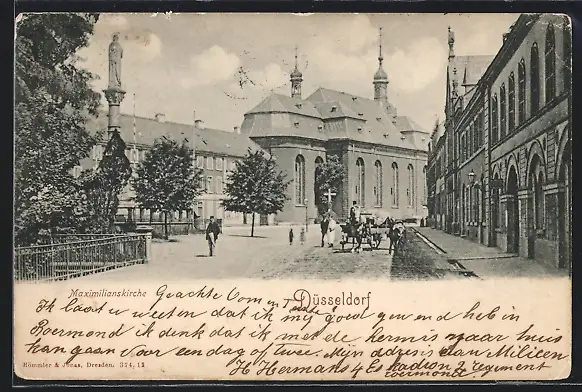 Maximilianskirche
Düsseldorf
Geachte Oom en Tante
Ik laat u weeten dat ik mij goed gewend heb in
Roermond ik denk dat ik met de kermis naar huis
kan gaan voor een dag of twee. Mijn adres is dan Milicien
H Hermans 4 Es kadron 2 regement
Roermond
Römmler & Jonas, Dresden, 374, 11